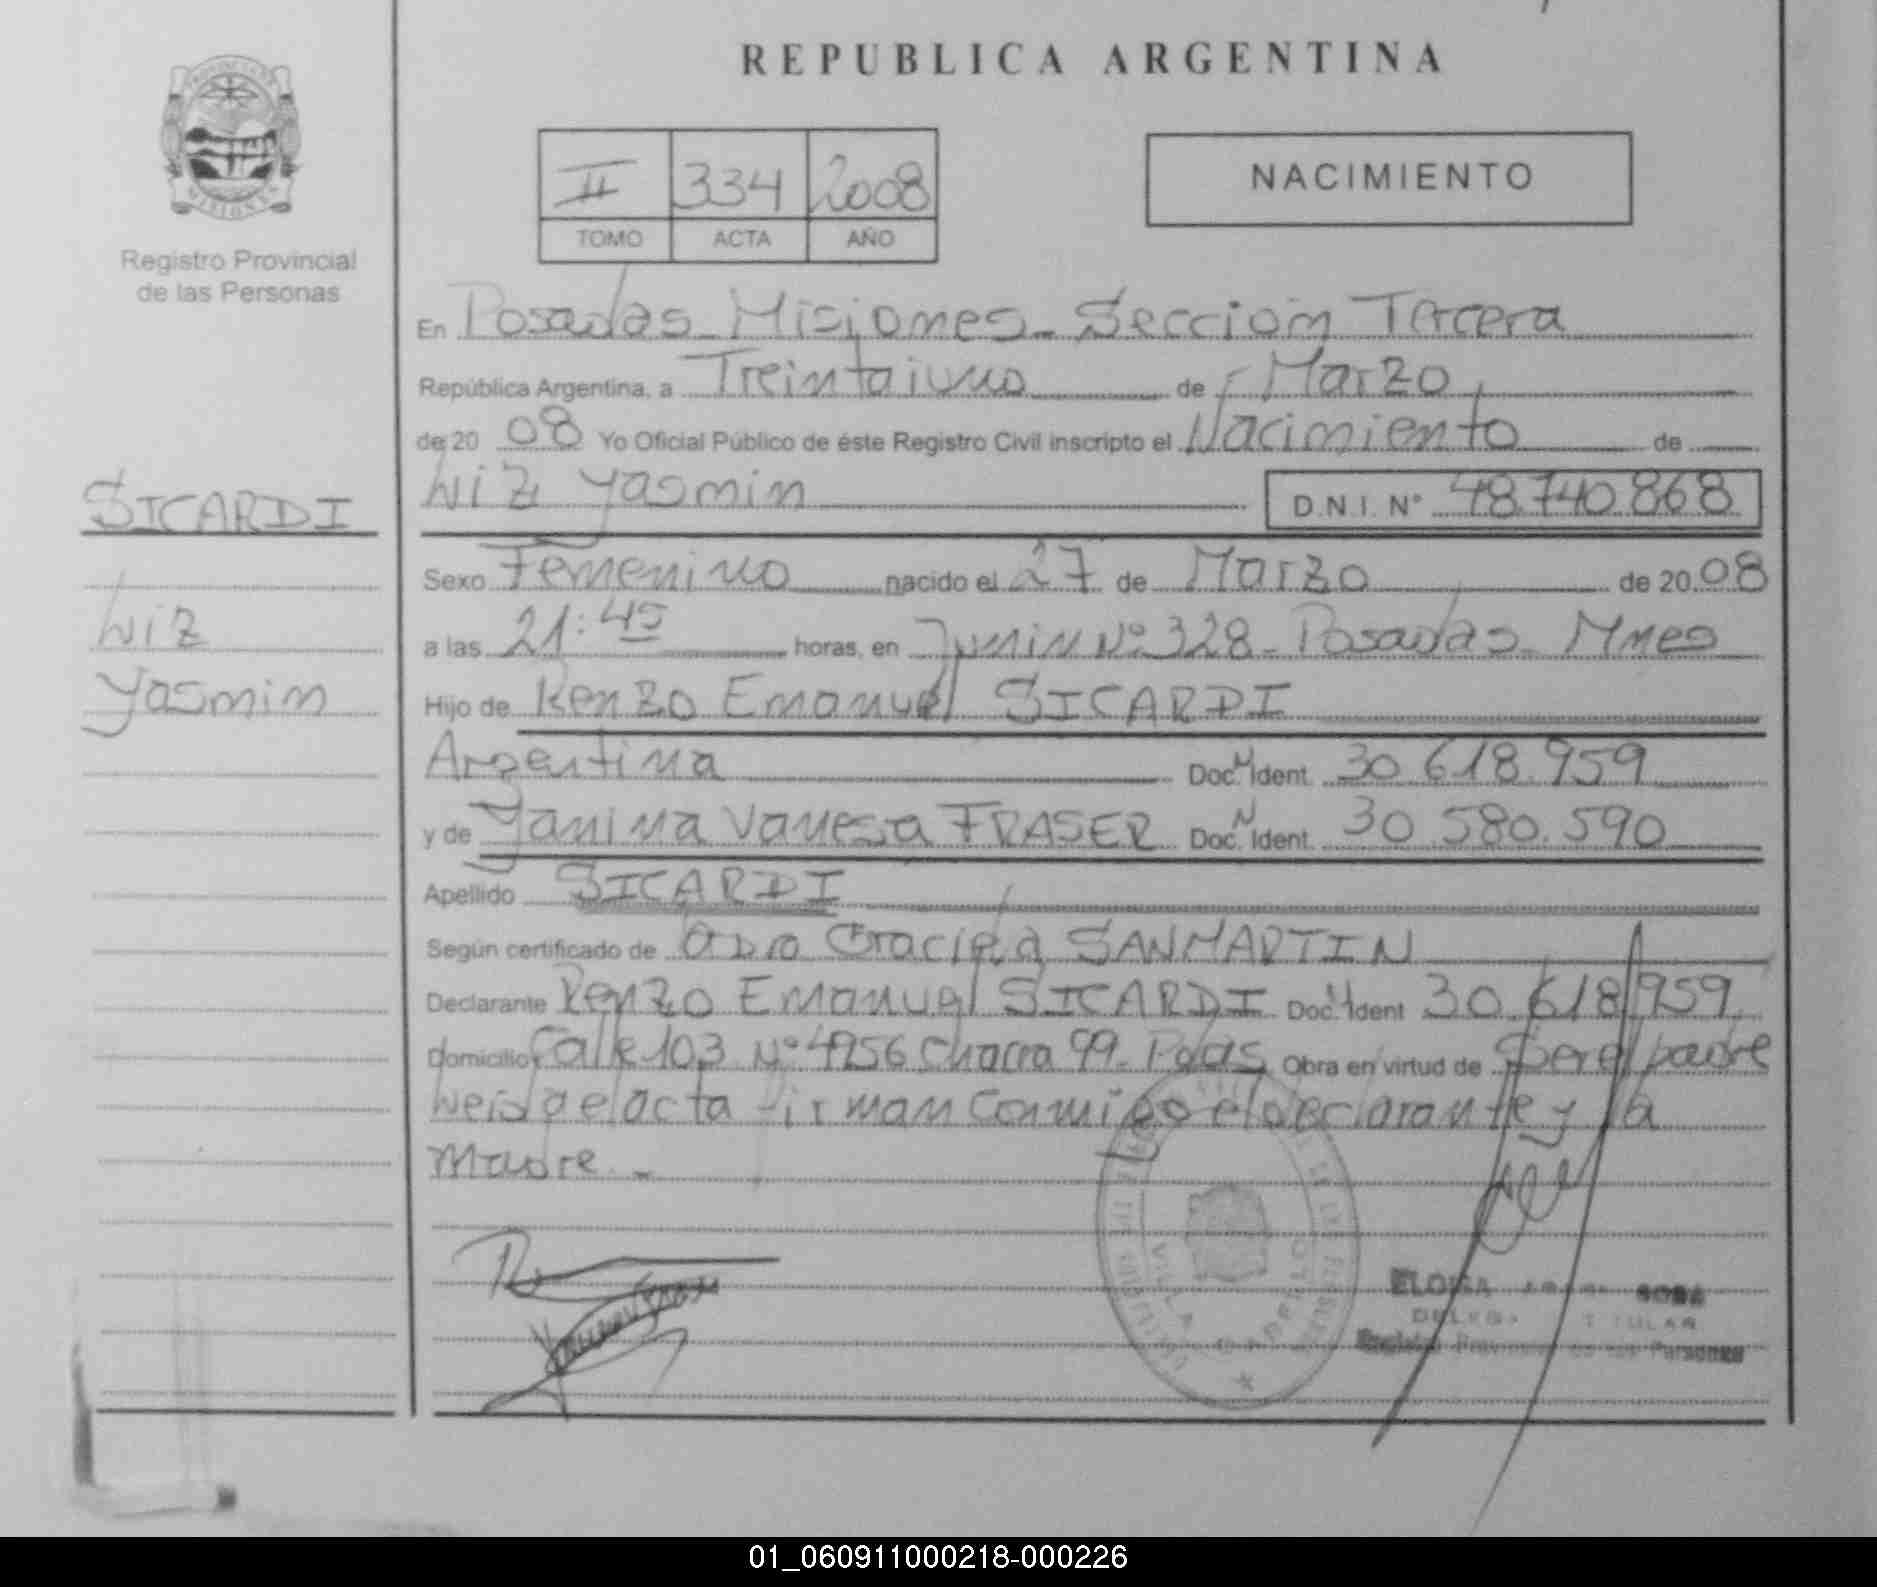 REPUBLICA ARGENTINA
PROVINCIA DE MISIONES
Registro Provincial
de las Personas
II 334 2008
TOMO ACTA AÑO
NACIMIENTO
En Posadas - Misiones - Sección Tercera
República Argentina, a Treintaiuno de Marzo
de 20 08 Yo Oficial Público de éste Registro Civil inscripto el Nacimiento de
Liz Yasmin D.N.I. Nº 48.740.868
SICARDI
Liz
Yasmin
Sexo Femenino nacido el 27 de Marzo de 20 08
a las 21:45 horas, en Junin Nº 328 - Posadas - Mnes
Hijo de Renzo Emanuel SICARDI
Argentina Doc. N Ident. 30.618.959
y de Yanina Vanesa FRASER Doc. N Ident. 30.580.590
Apellido SICARDI
Según certificado de Graciela SANMARTIN
Declarante Renzo Emanuel SICARDI Doc. N Ident 30.618.959
Domicilio Calle 103 Nº 4956 Chacra 99 - Pdas Obra en virtud de Ser el padre
Leida el acta firman conmigo el declarante y la
Madre. -
VILLA CABELLO
ELOISA SOSA
TITULAR
Registro Provincial de las Personas
01_060911000218-000226